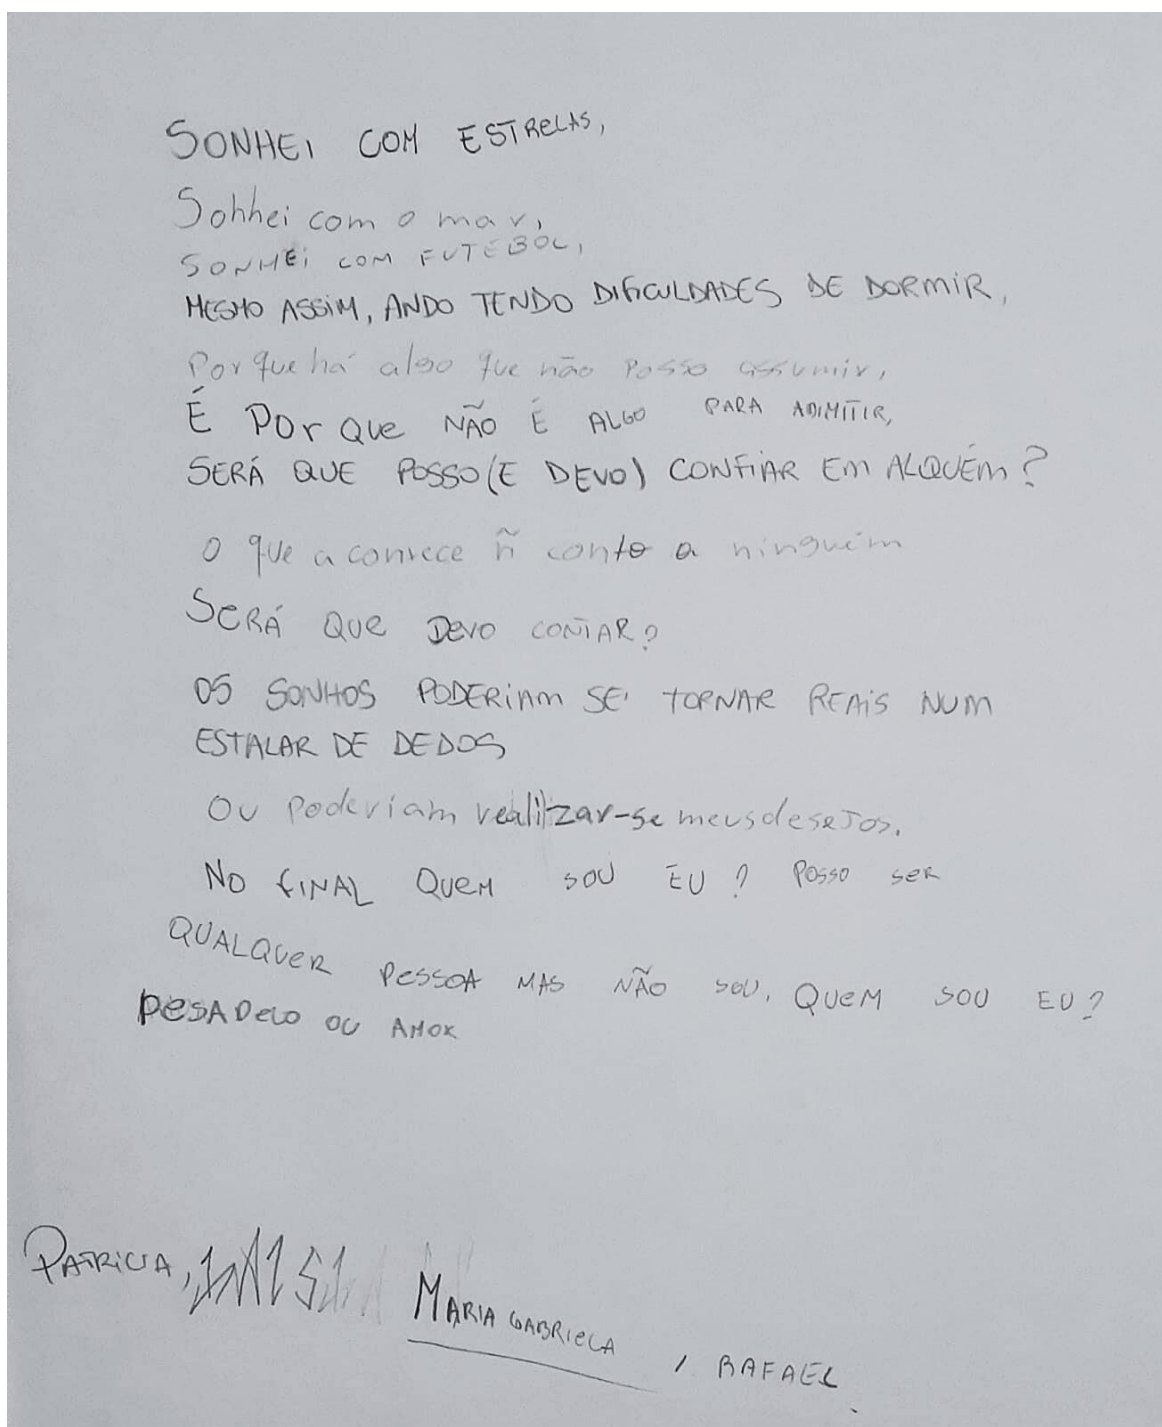 SONHEI COM ESTRELAS,
Sonhei com o mar,
SONHEI COM FUTEBOL,
MESMO ASSIM, ANDO TENDO DIFICULDADES DE DORMIR,
Porque há algo que não posso assumir,
É PorQue NÃO É ALGO PARA ADIMITIR,
SERÁ QUE POSSO(E DEVO) CONFIAR EM ALQUÉM?
O que aconvece ñ conto a ninguém
SERÁ QUE DEVO CONTAR?
OS SONHOS PODERIAM SE TORNAR REAIS NUM
ESTALAR DE DEDOS
OU Poderiam realizar-se meus desejos.
NO FINAL QUEM SOU EU? POSSO SER
QUALQUER PESSOA MAS NÃO SOU, QUEM SOU EU?
PESADELO OU AMOR
PATRICIA,
MARIA GABRIELA , RAFAEL